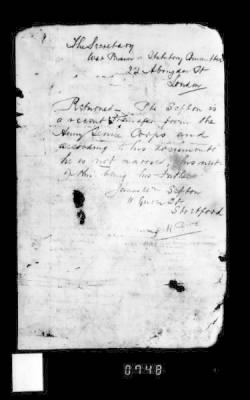 The Secretary
War Pensions Statutory Committee
22 Abingdon St
London
Returned. Pte Sefton is
a recent transfer from the
Army Service Corps and
according to his documents
he is not married, his next
of kin being his Father
Sefton
11 Queen St
Stortford
0748